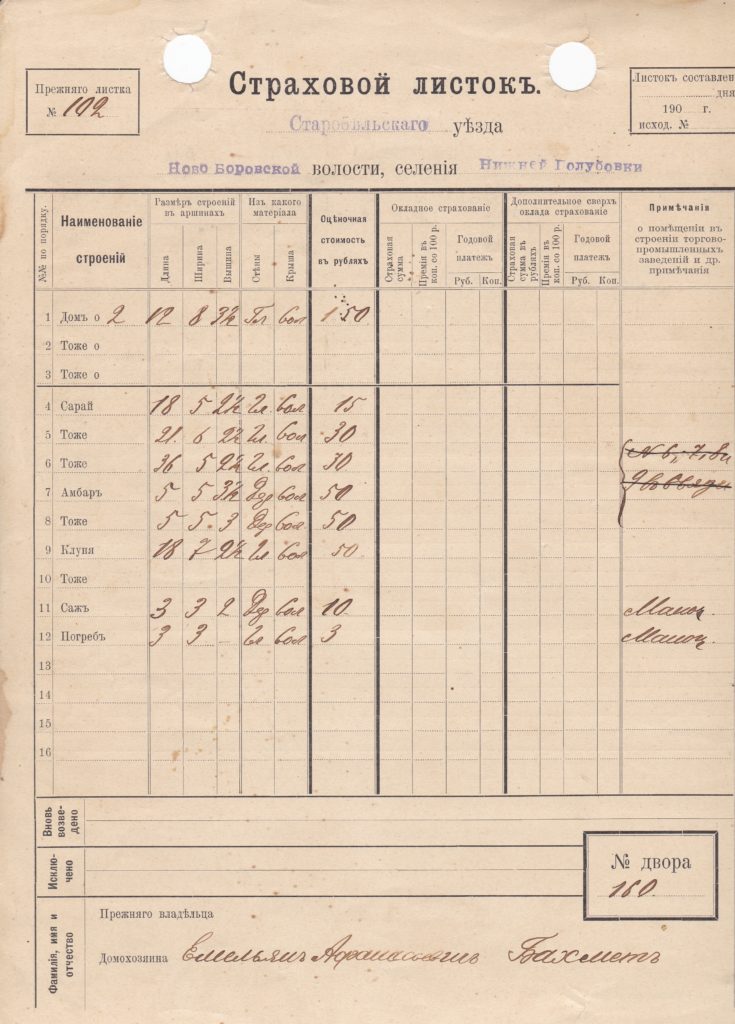 Прежняго листка
№ 102
Страховой листокъ.
Листокъ составлен
дня
190 г.
исход. №
Старобѣльскаго уѣзда
Ново Боровской волости, селенія Нижней Голубовки
№№ по порядку.
Наименованіе строеній
Размѣръ строеній въ аршинахъ
Длина
Ширина
Вышина
Изъ какого матеріала
Стѣны
Крыша
Оцѣночная стоимость въ рубляхъ
Окладное страхованіе
Страховая сумма
Премія въ коп. со 100 р.
Годовой платежъ
Руб. Коп.
Дополнительное сверхъ оклада страхованіе
Страховая сумма въ рубляхъ
Премія въ коп. со 100 р.
Годовой платежъ
Руб. Коп.
Примѣчанія
о помѣщеніи въ строеніи торгово-промышленныхъ заведеній и др. примѣчанія
1 Домъ о 2 12 8 3½ Гл Сол 150
2 Тоже о
3 Тоже о
4 Сарай 18 5 2½ Гл. Сол 15
5 Тоже 21 6 2½ Гл. Сол 30
6 Тоже 36 5 2½ Гл. Сол 30
7 Амбаръ 5 5 3½ Дер Сол 50
8 Тоже 5 5 3 Дер Сол 50
9 Клуня 18 7 2½ Гл Сол 50
10 Тоже
11 Сажъ 3 3 2 Дер Сол 10
12 Погребъ 3 3 – Гл Сол 3
13
14
15
16
Вновь возведено
Исключено
№ двора
160
Фамилія, имя и отчество
Прежняго владѣльца
Домохозяина Емельянъ Афанасьевъ Бахметъ